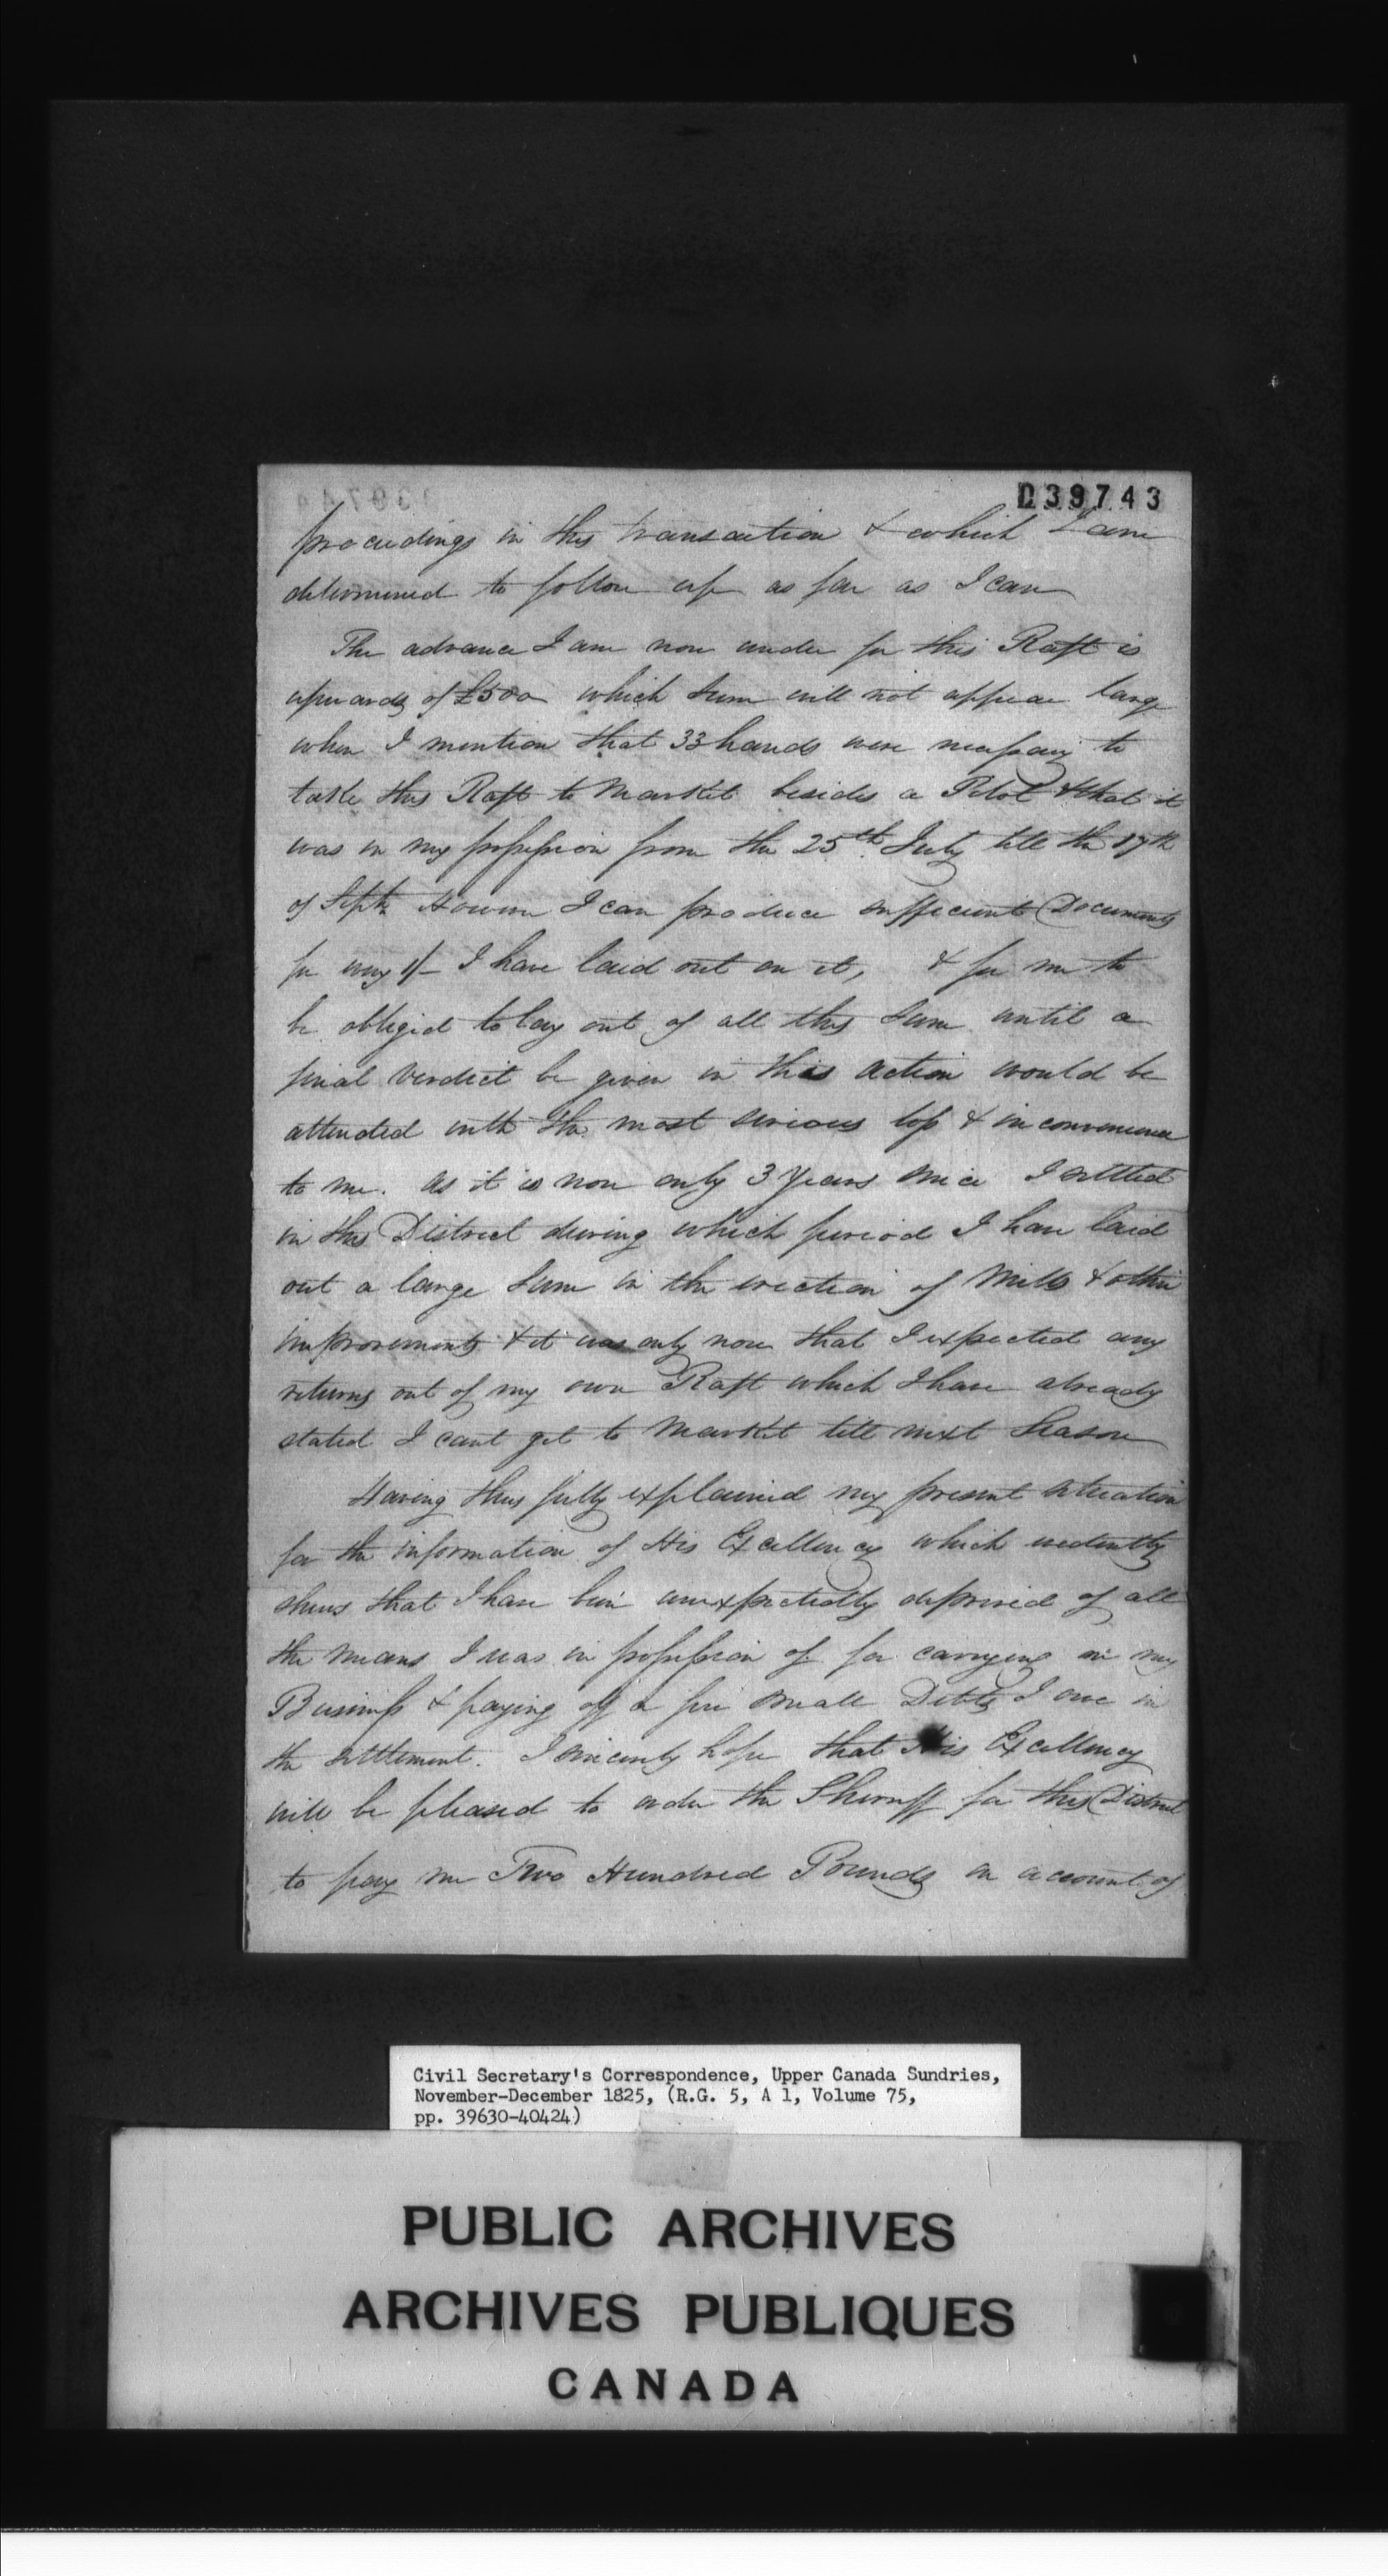 039743
proceedings in this transaction & which I am
determined to follow up as far as I can
The advance I am now under for this Raft is
upwards of £500 which sum will not appear large
when I mention that 33 hands were necessary to
take this Raft to Market besides a Pilot & that it
was in my possession from the 25th July till the 17th
of Septr However I can produce sufficient Documents
for every 1/- I have laid out on it, & for me to
be obliged to lay out of all this sum until a
final Verdict be given in this action would be
attended with the most serious loss & inconvenience
to me. as it is now only 3 Years since I settled
in this District during which period I have laid
out a large sum in the erection of Mills & other
improvements & it was only now that I expected any
returns out of my own Raft which I have already
stated I cant get to Market till next Season
Having thus fully explained my present situation
for the information of His Excellency which evidently
shews that I have been unexpectedly deprived of all
the means I was in possession of for carrying on my
Business & paying off a few small Debts I owe in
the settlement. I sincerely hope that His Excellency
will be pleased to order the Sherriff for this District
to pay me Two Hundred Pounds on account of
Civil Secretary's Correspondence, Upper Canada Sundries,
November-December 1825, (R.G. 5, A 1, Volume 75,
pp. 39630-40424)
PUBLIC ARCHIVES
ARCHIVES PUBLIQUES
CANADA